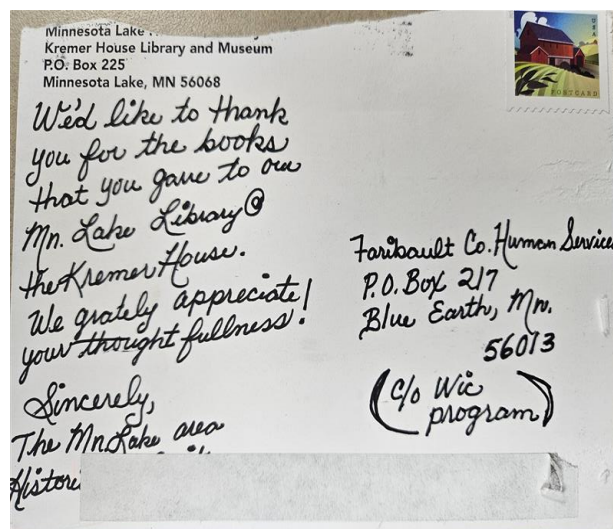 Minnesota Lake
Kremer House Library and Museum
P.O. Box 225
Minnesota Lake, MN 56068
USA
POSTCARD
We'd like to thank
you for the books
that you gave to our
Mn. Lake Library @
the Kremer House.
We grately appreciate
your thought fullness!
Sincerely,
The Mn Lake area
Faribault Co. Human Services
P.O. Box 217
Blue Earth, Mn.
56013
(c/o Wic
program)